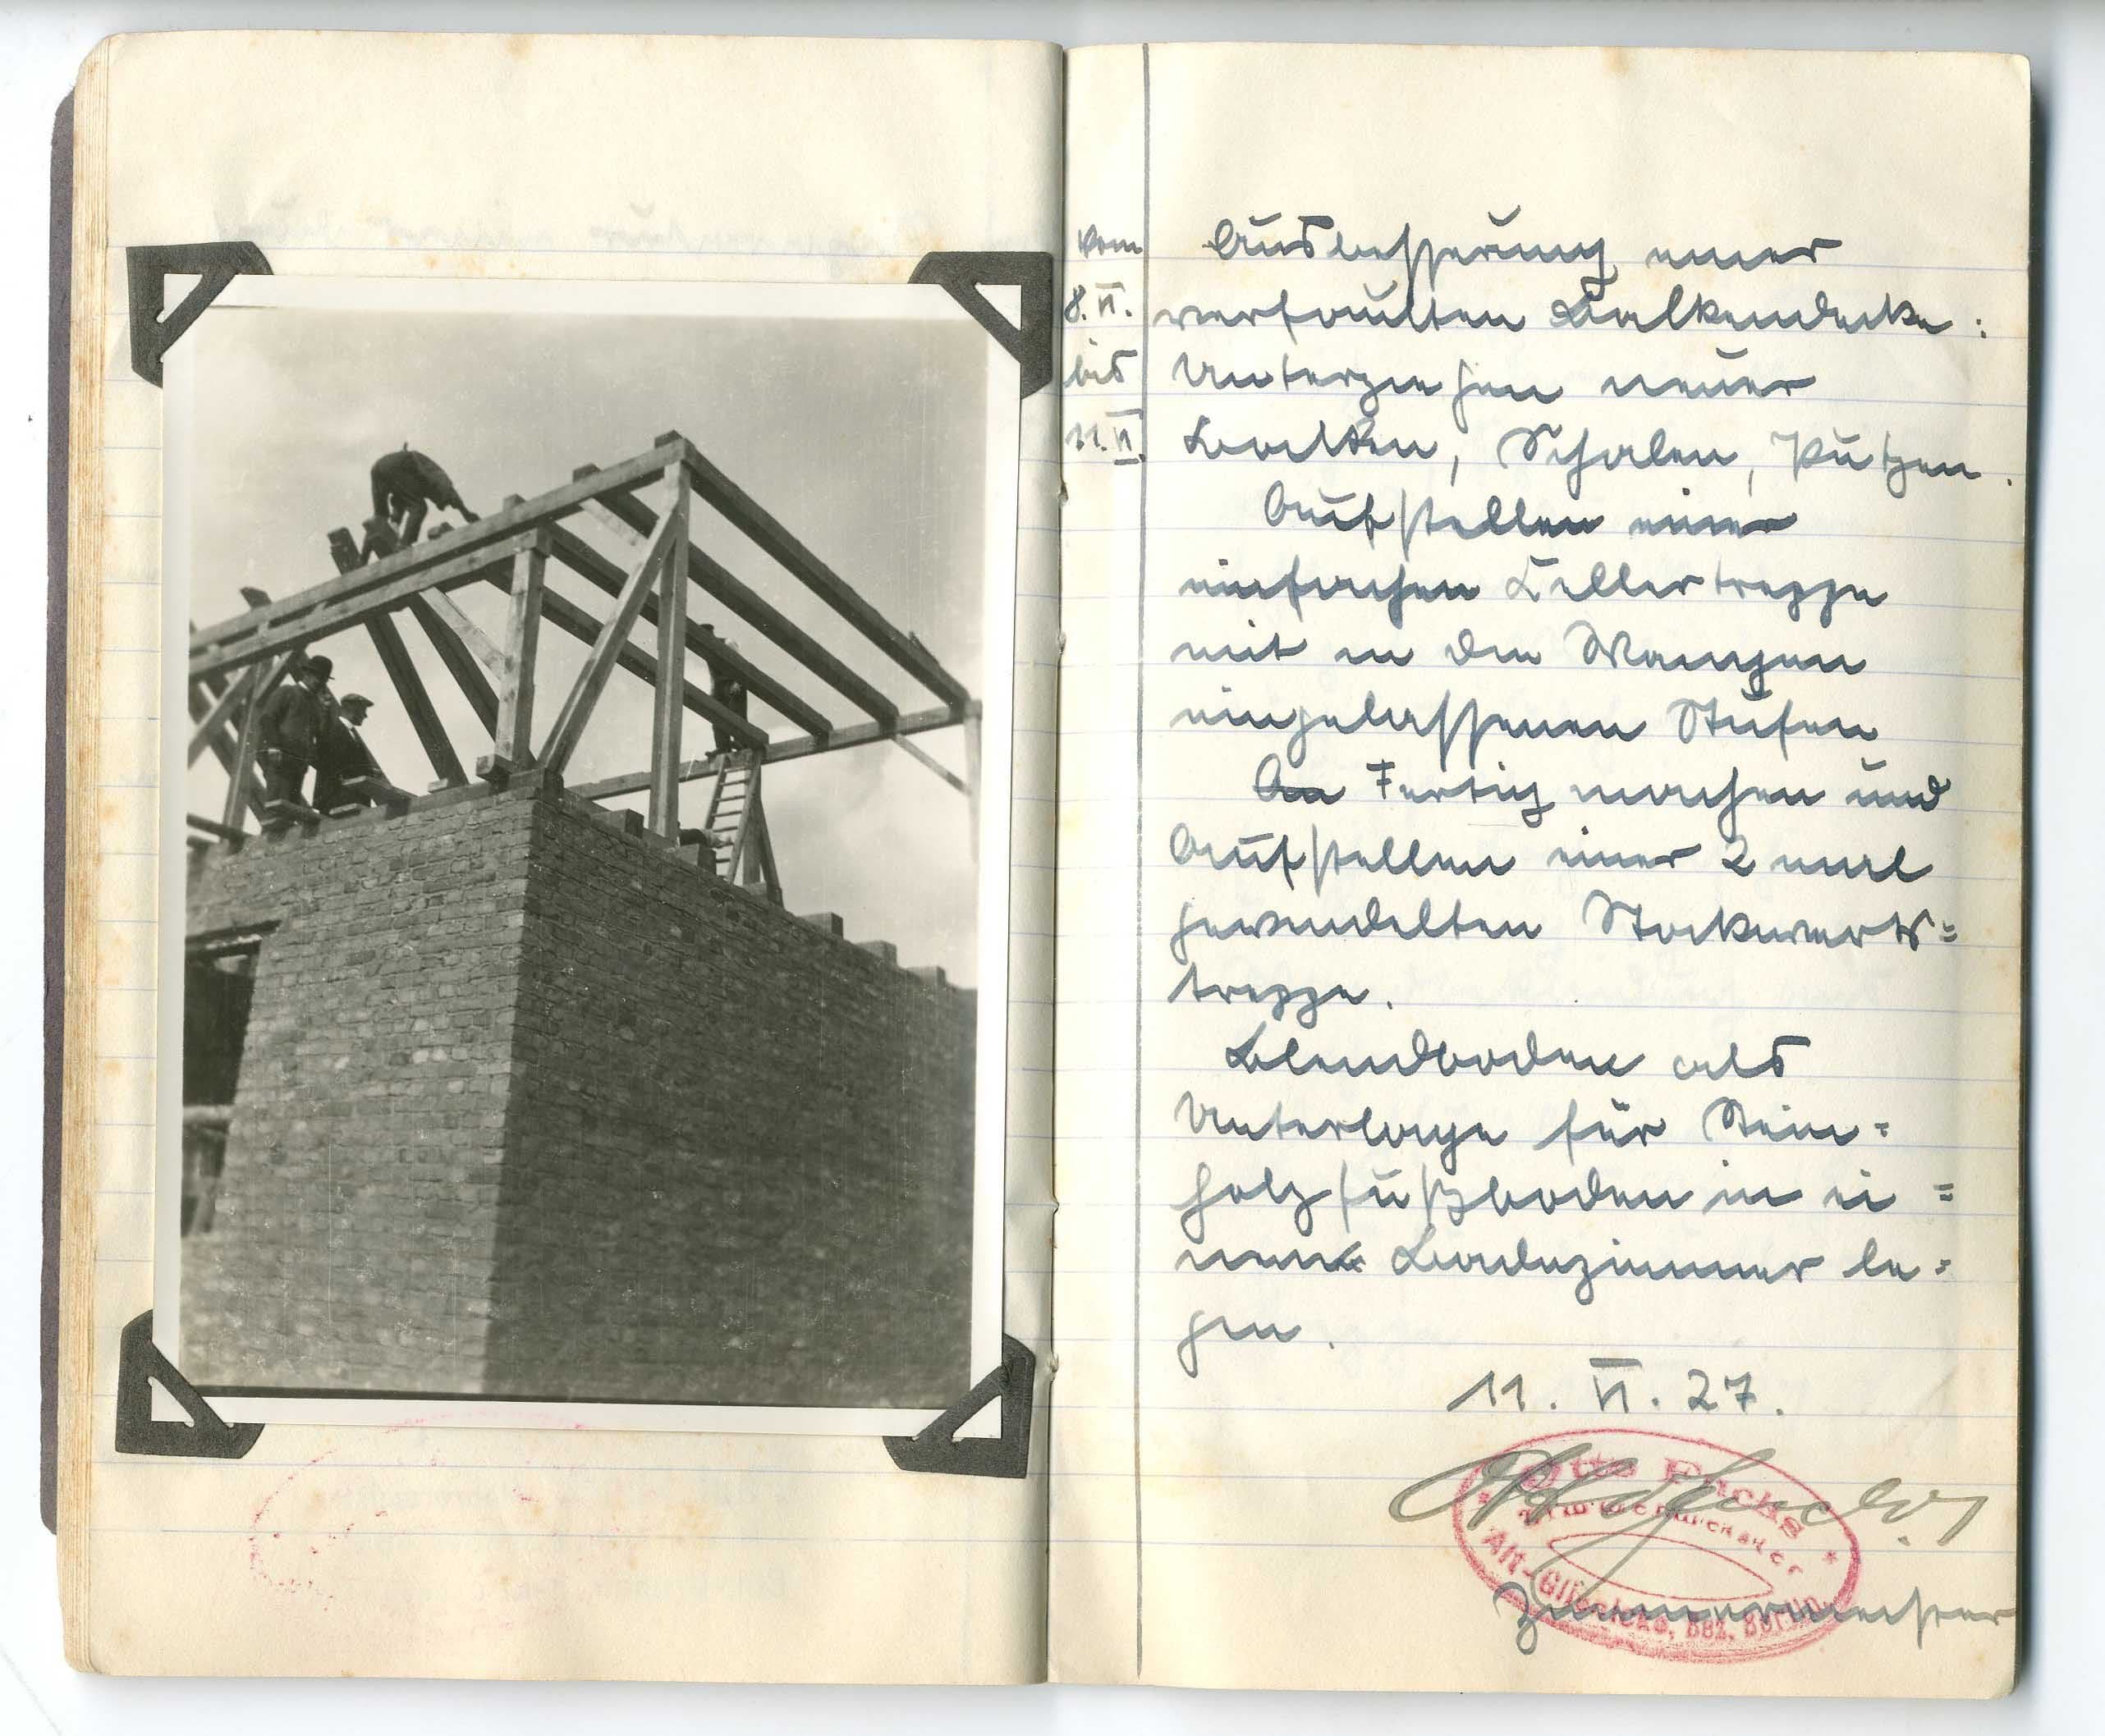 vom
8. VI.
bis
11. VI.
Ausbesserung einer
verfaulten Balkendecke:
Unterziehen neuer
Balken, Schalen, Putzen.
Aufstellen einer
einfachen Kellertreppe
mit in die Wangen
eingelassenen Stufen
An Fertig machen und
Aufstellen einer 2 mal
gewendelten Stockwerks=
treppe.
Blendboden als
Unterlage für Stein=
holzfußboden in ei=
nem Badezimmer le=
gen.
11. VI. 27.
Otto Fuchs
Zimmermeister
Alt-Glienicke, Bez. Berlin
Zimmermeister